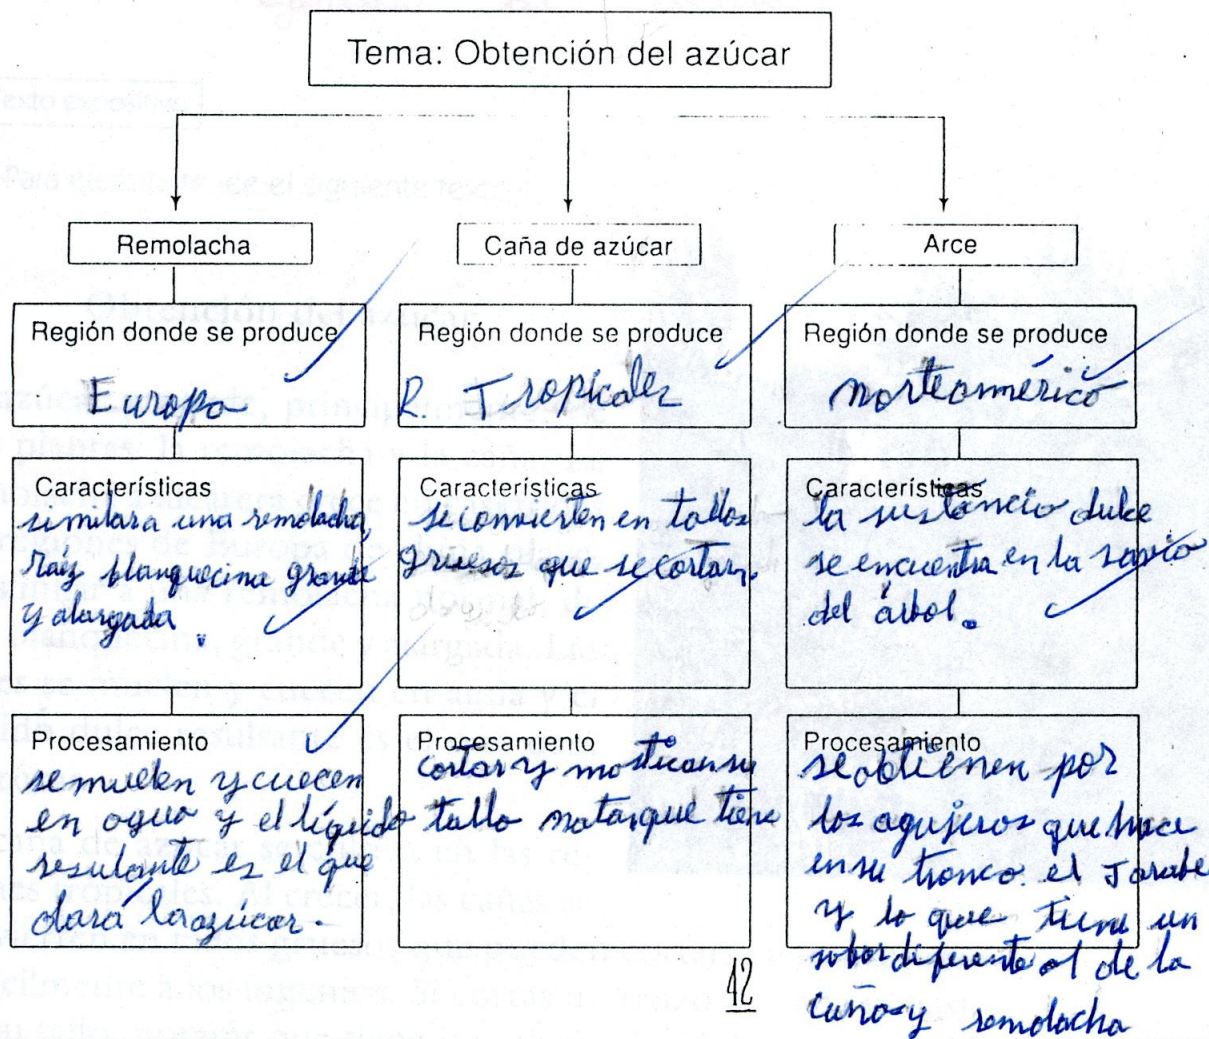 Tema: Obtención del azúcar
Remolacha
Región donde se produce
Europa
Características
similar a una remolacha,
raíz blanquecina grande
y alargada.
Procesamiento
se muelen y cuecen
en agua y el líquido
resulante es el que
dará la azúcar.
Caña de azúcar
Región donde se produce
R. Tropicales
Características
se convierten en tallos
gruesos que se cortan.
Procesamiento
cortar y masticar su
tallo notar que tiene
Arce
Región donde se produce
norteamérica
Características
la sustancia dulce
se encuentra en la savia
del árbol.
Procesamiento
se obtienen por
los agujeros que hace
en su tronco. el Jarabe
y lo que tiene un
sabor diferente al de la
caña y remolacha
12